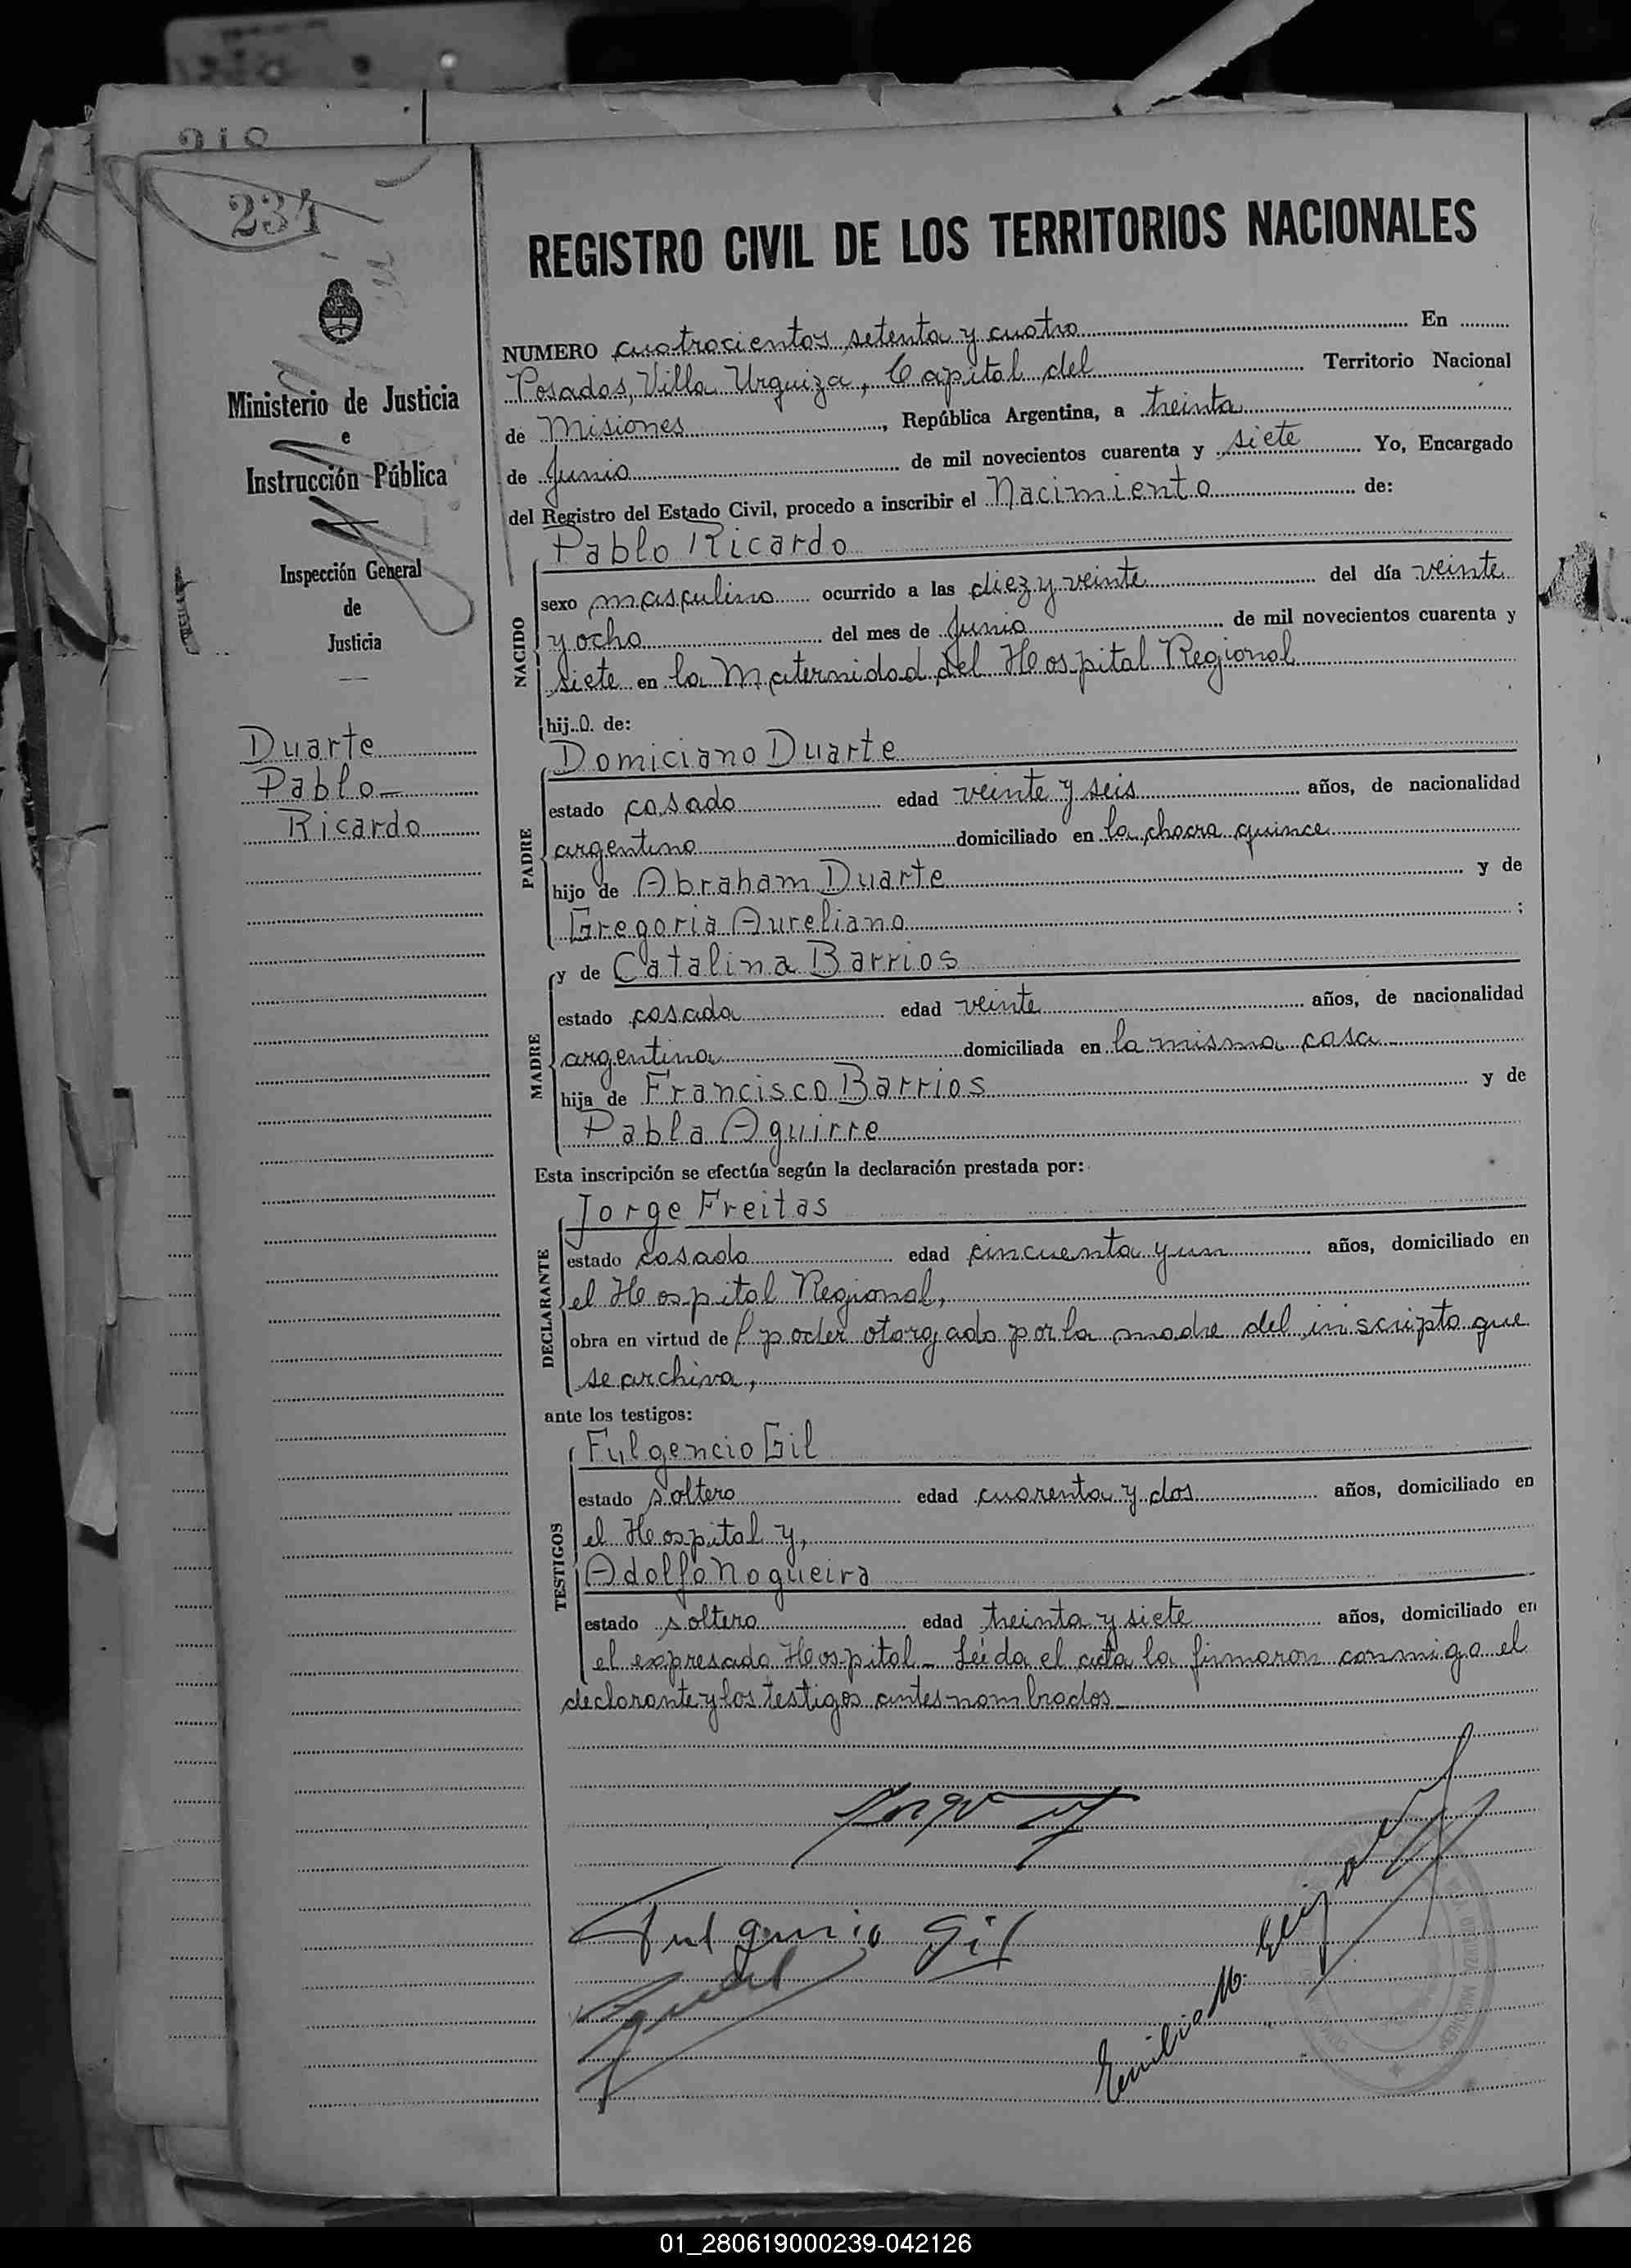 234
Ministerio de Justicia
e
Instrucción Pública
Inspección General
de
Justicia
Duarte
Pablo
Ricardo
REGISTRO CIVIL DE LOS TERRITORIOS NACIONALES
NUMERO cuatrocientos setenta y cuatro En
Posadas, Villa Urquiza, Capital del Territorio Nacional
de Misiones, República Argentina, a treinta
de Junio de mil novecientos cuarenta y siete Yo, Encargado
del Registro del Estado Civil, procedo a inscribir el Nacimiento de:
NACIDO
Pablo Ricardo
sexo masculino ocurrido a las diez y veinte del día veinte
y ocho del mes de Junio de mil novecientos cuarenta y
siete en la Maternidad del Hospital Regional
hijo de:
PADRE
Domiciano Duarte
estado casado edad veinte y seis años, de nacionalidad
argentino domiciliado en la chacra quince
hijo de Abraham Duarte y de
Gregoria Aureliano ;
MADRE
y de Catalina Barrios
estado casada edad veinte años, de nacionalidad
argentina domiciliada en la misma casa
hija de Francisco Barrios y de
Pabla Aguirre
Esta inscripción se efectúa según la declaración prestada por:
DECLARANTE
Jorge Freitas
estado casado edad cincuenta y un años, domiciliado en
el Hospital Regional,
obra en virtud del poder otorgado por la madre del inscripto que
se archiva,
ante los testigos:
TESTIGOS
Fulgencio Gil
estado soltero edad cuarenta y dos años, domiciliado en
el Hospital y,
Adolfo Nogueira
estado soltero edad treinta y siete años, domiciliado en
el expresado Hospital - Leída el acta la firmaron conmigo el
declarante y los testigos antes nombrados
Fulgencio Gil
Emilio M.
01_280619000239-042126